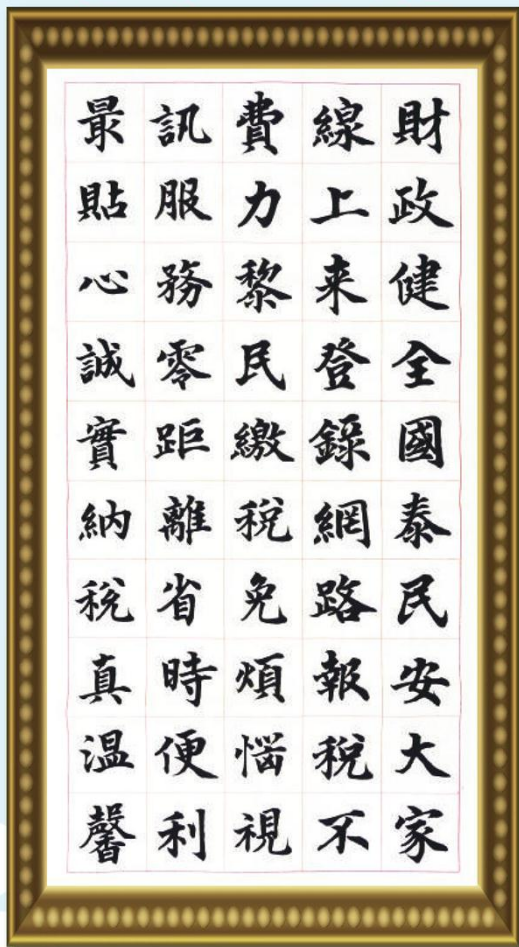 財政健全國泰民安大家
線上来登錄網路報稅不
費力黎民繳稅免煩惱視
訊服務零距離省時便利
最貼心誠實納稅真溫馨